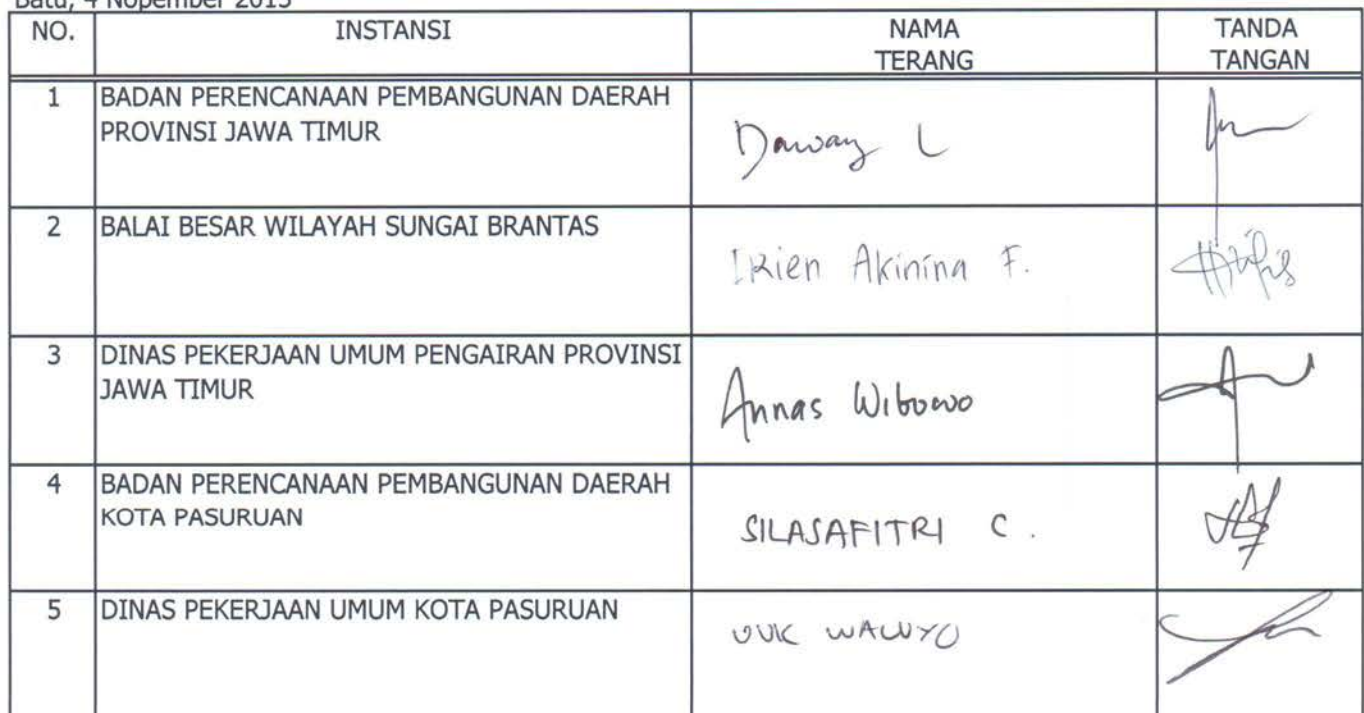 Batu, 4 Nopember 2013
NO. INSTANSI NAMA TERANG TANDA TANGAN
1 BADAN PERENCANAAN PEMBANGUNAN DAERAH
PROVINSI JAWA TIMUR
L
2 BALAI BESAR WILAYAH SUNGAI BRANTAS
Irien Akinina F.
3 DINAS PEKERJAAN UMUM PENGAIRAN PROVINSI
JAWA TIMUR
Annas Wibowo
4 BADAN PERENCANAAN PEMBANGUNAN DAERAH
KOTA PASURUAN
SILASAFITRI C.
5 DINAS PEKERJAAN UMUM KOTA PASURUAN
WALUYO